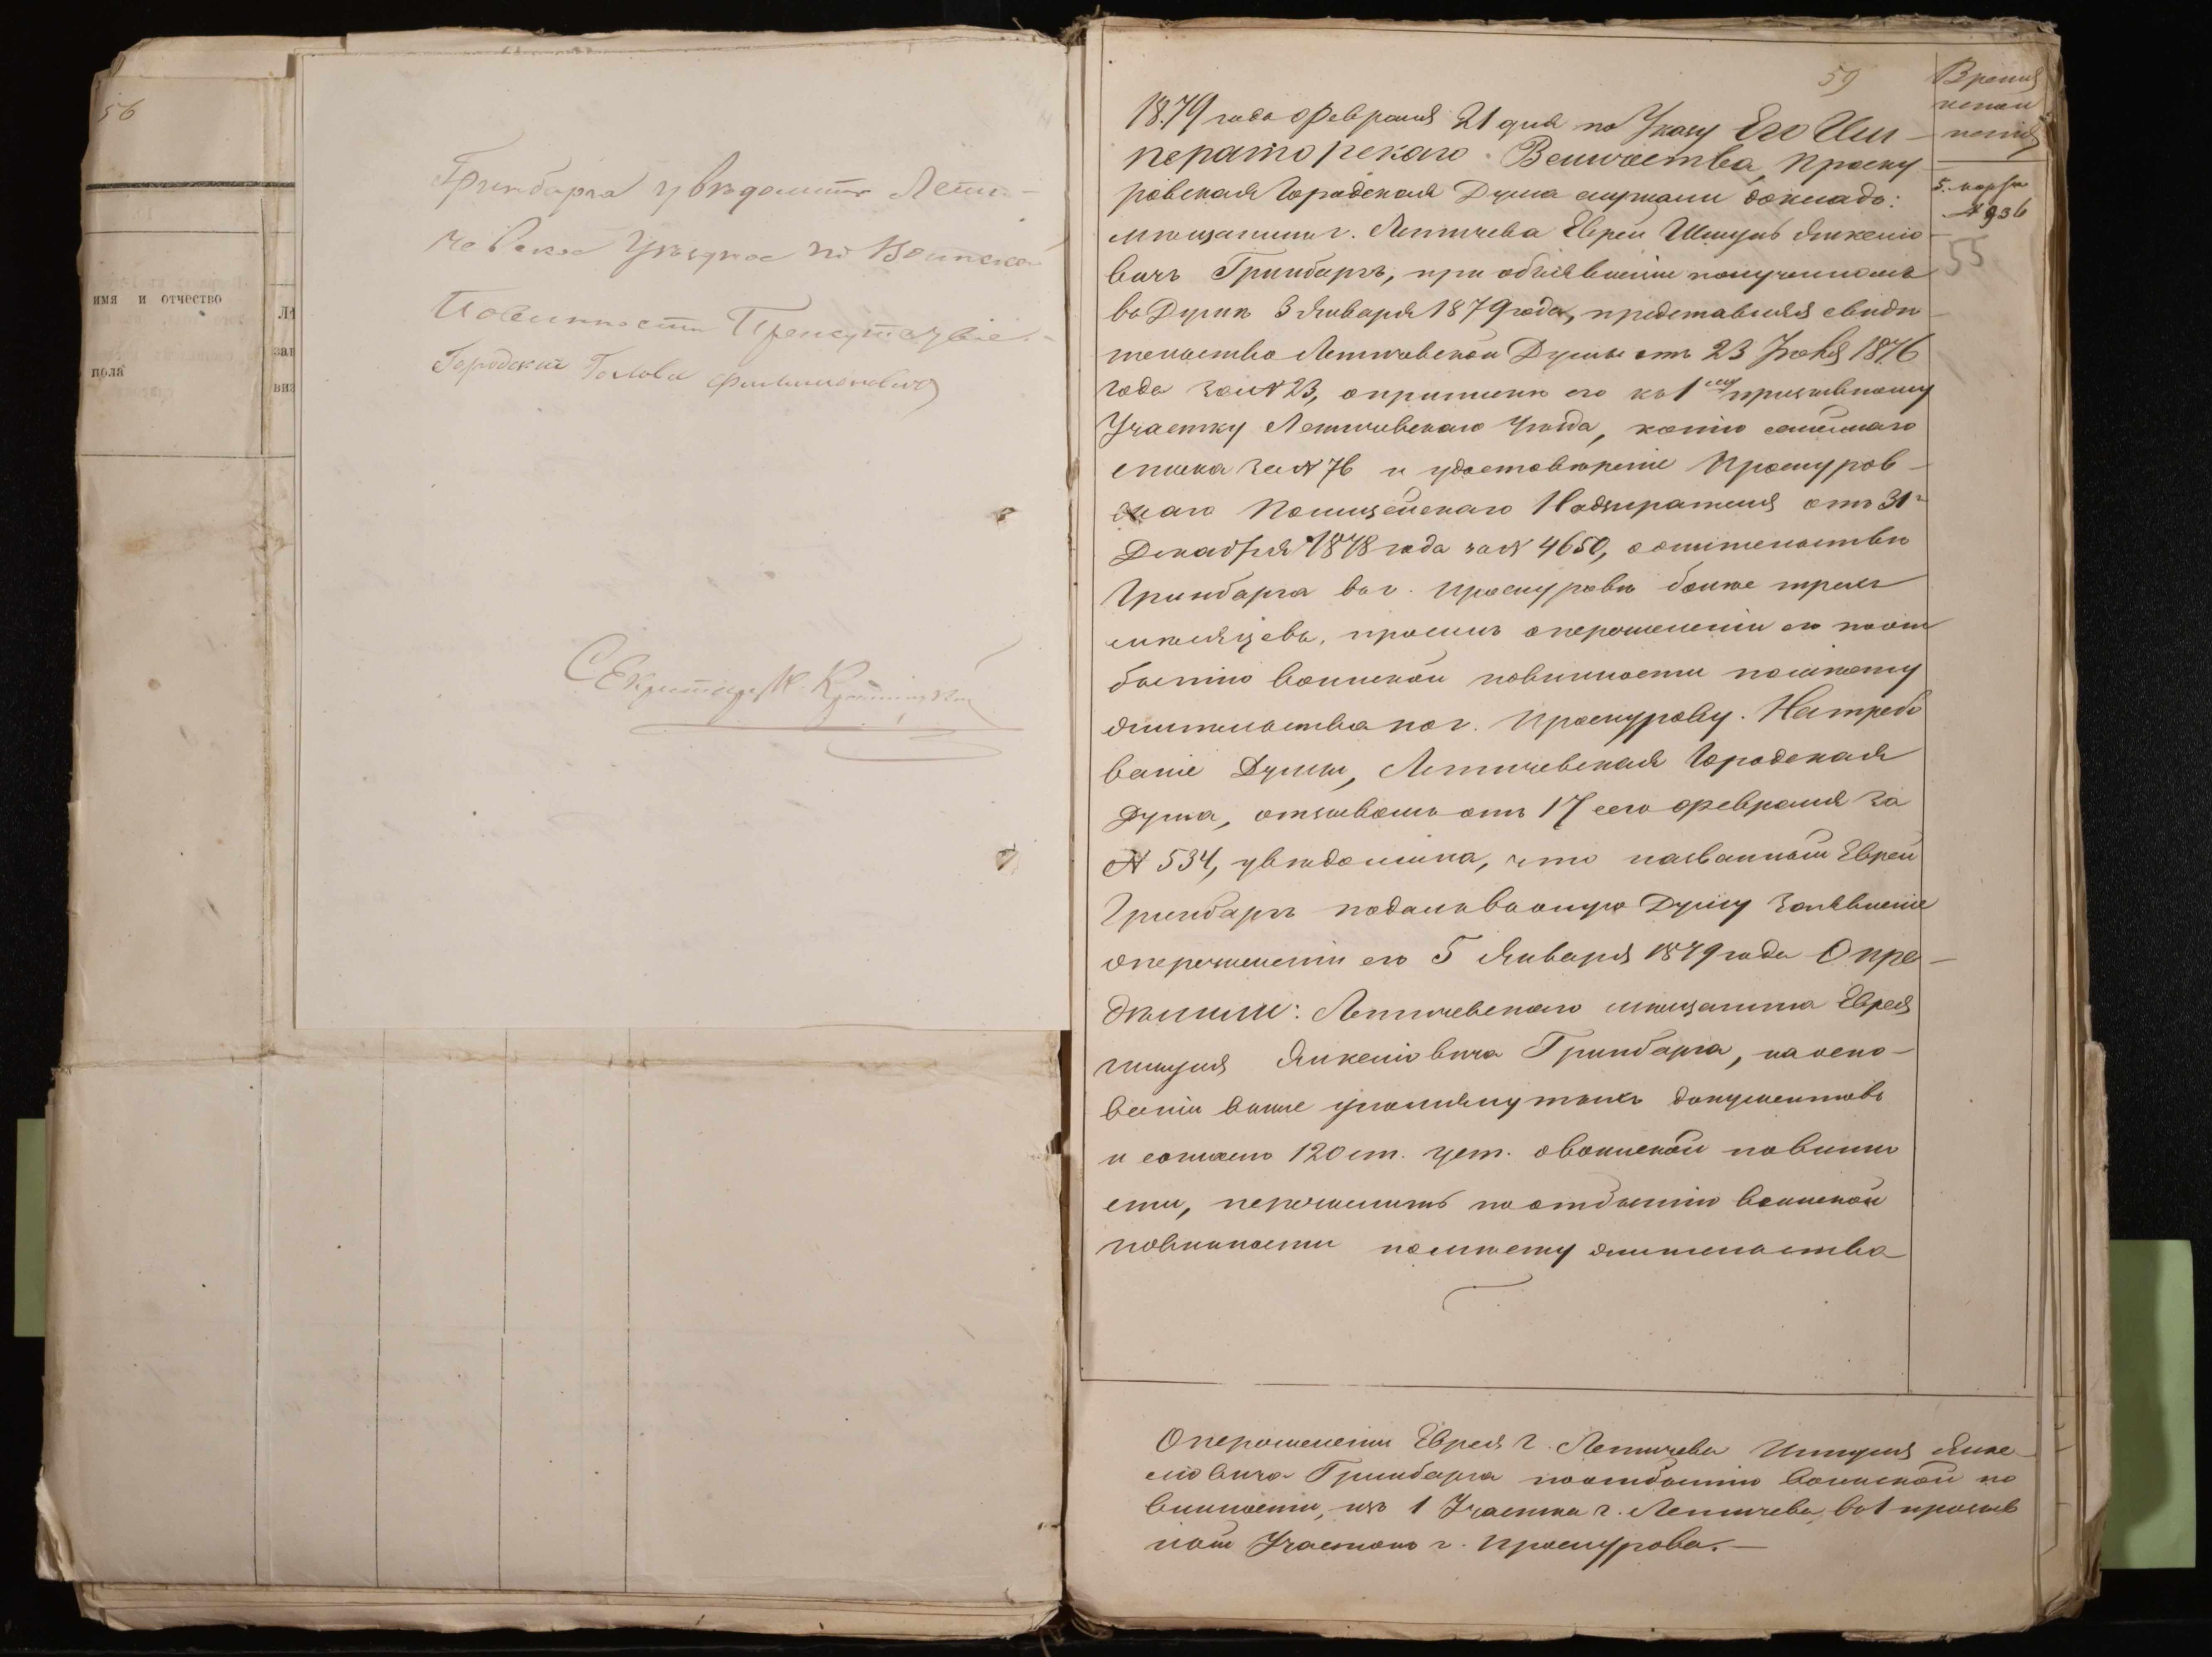 56
имя и отчество
пола
Гринбарга увѣдомить Лети-
чевское Уѣздное по Воинской
Повинности Присутствіе.-
Городской Голова
Секретарь К.
59
Время
испол
ненія
5 марта
№ 936
55
1879 года Февраля 21 дня по Указу Его Им-
ператорскаго Величества, Проску-
ровская Городская Дума слушали докладъ:
мѣщанинъ г. Летичева Еврей Шмуль Янкелио-
вичъ Гринбаргъ, при объявленіи полученномъ
въ Думѣ 3 Января 1879 года, представляя свидѣ-
тельство Летичевской Думы отъ 23 1876
года за № 23, о припискѣ его къ 1му призывному
Участку Летичевскаго Уѣзда, копію семейнаго
списка за № 76 и удостовѣреніе Проскуров-
скаго Полицейскаго Надзирателя отъ 31
Декабря 1878 года за № 4650, о жительствѣ
Гринбарга въ г. Проскуровѣ болѣе трехъ
мѣсяцевъ, проситъ о перечисленіи его по от
бытію воинской повинности по мѣсту
жительства по г. Проскурову. На требо
ваніе Думы, Летичевская Городская
Дума, отзывомъ отъ 17 сего февраля за
№ 534, увѣдомила, что названный Еврей
Гринбаргъ подалъ въ оную Думу заявленіе
о перечисленіи его 5 Января 1879 года Опре-
дѣлили: Летичевскаго мѣщанина Еврея
Шмуля Янкелиовича Гринбарга, на осно-
ваніи выше упомянутыхъ документовъ
и согласно 120 ст. уст. о воинской повинно
сти, перечислить по отбытію воинской
повинности по мѣсту жительства
О перечисленіи Еврея г. Летичева Шмуля Янке-
лiовича Гринбарга по отбытію воинской по
винности, изъ 1 Участка г. Летичева, въ 1 призыв
ной Участокъ г. Проскурова.-